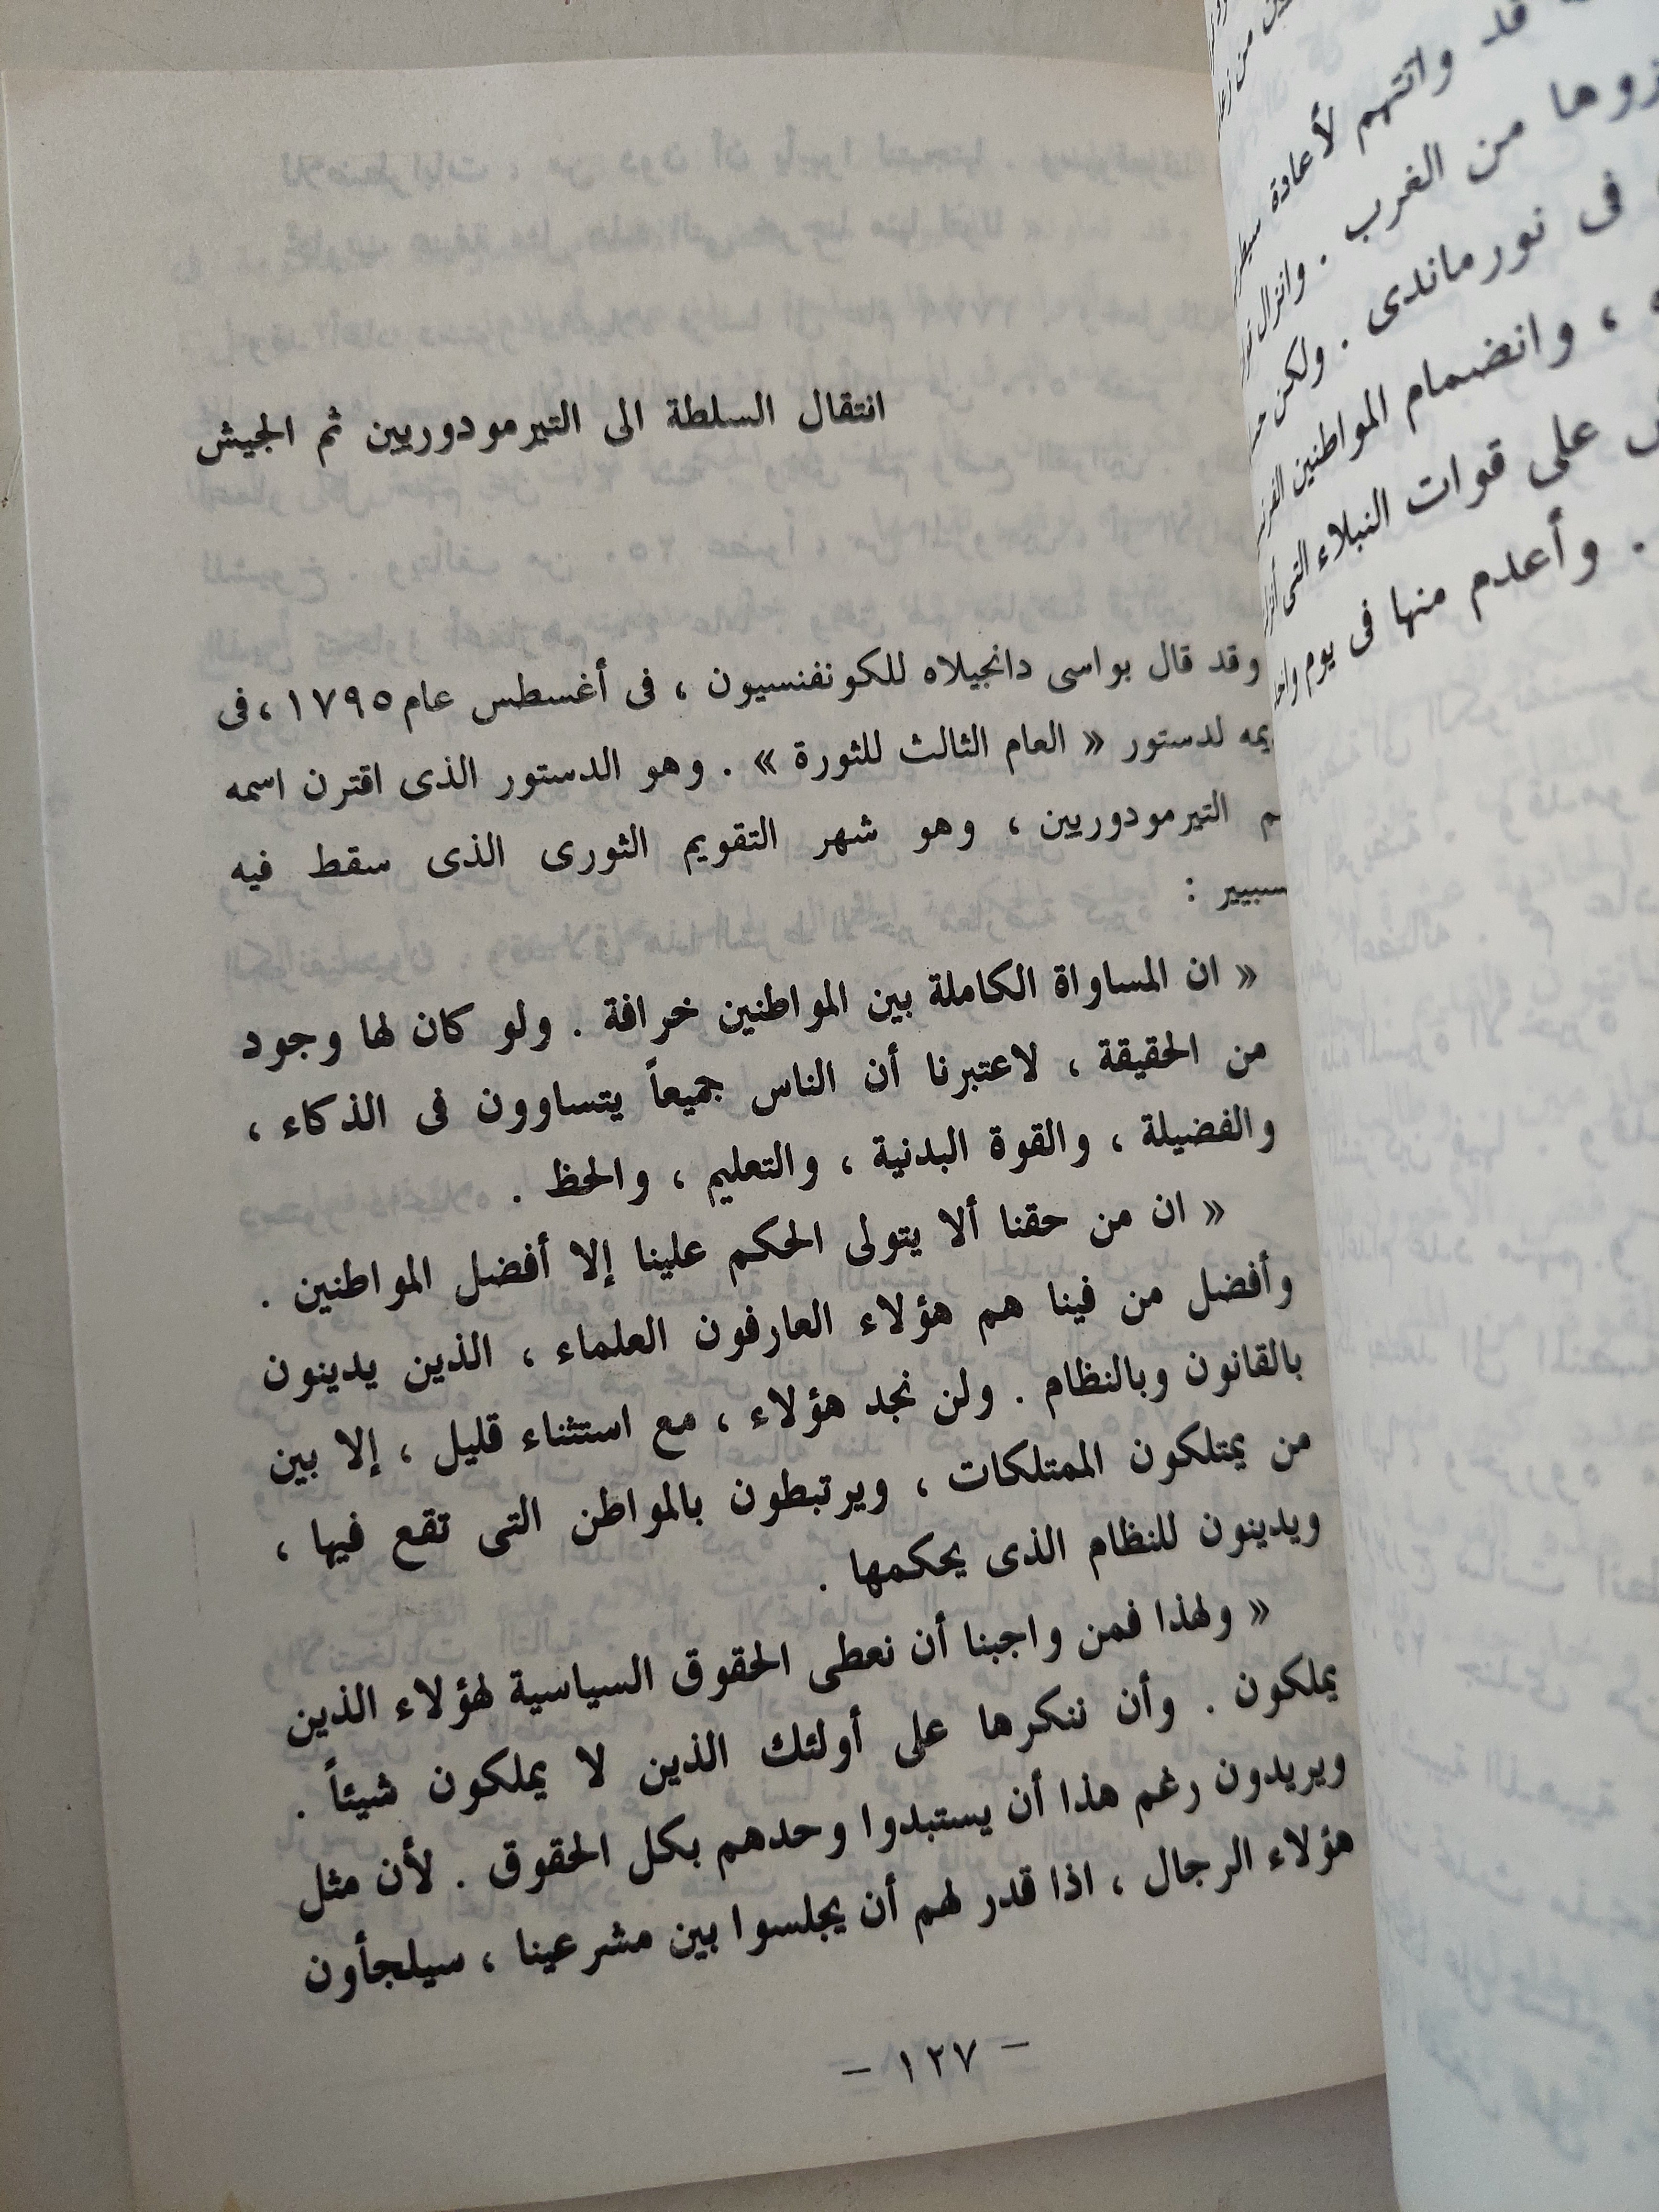 انتقال السلطة الى التيرمودوريين ثم الجيش
وقد قال بواسى دانجيلاه للكونفنسيون ، فى أغسطس عام ١٧٩٥ ، فى
لدستور « العام الثالث للثورة » . وهو الدستور الذى اقترن اسمه
التيرمودوريين ، وهو شهر التقويم الثورى الذى سقط فيه
:
« ان المساواة الكاملة بين المواطنين خرافة . ولو كان لها وجود
من الحقيقة ، لاعتبرنا أن الناس جميعاً يتساوون فى الذكاء ،
والفضيلة ، والقوة البدنية ، والتعليم ، والحظ .
« ان من حقنا ألا يتولى الحكم علينا إلا أفضل المواطنين .
وأفضل من فينا هم هؤلاء العارفون العلماء ، الذين يدينون
بالقانون وبالنظام . ولن نجد هؤلاء ، مع استثناء قليل ، إلا بين
من يمتلكون الممتلكات ، ويرتبطون بالمواطن التى تقع فيها ،
ويدينون للنظام الذى يحكمها .
« ولهذا فمن واجبنا أن نعطى الحقوق السياسية لهؤلاء الذين
يملكون . وأن ننكرها على أولئك الذين لا يملكون شيئاً .
ويريدون رغم هذا أن يستبدوا وحدهم بكل الحقوق . لأن مثل
هؤلاء الرجال ، اذا قدر لهم أن يجلسوا بين مشرعينا ، سيلجأون
– ١٢٧ –
قد واتتهم لأعادة
من الغرب . وانزال
فى نورماندى . ولكن
، وانضمام المواطنين
على قوات النبلاء التى
. وأعدم منها فى يوم